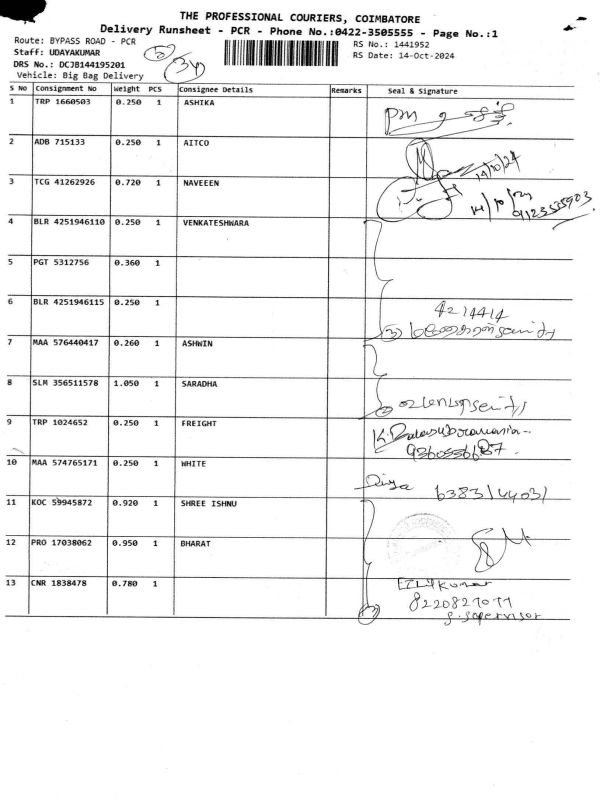 THE PROFESSIONAL COURIERS, COIMBATORE
Delivery Runsheet - PCR - Phone No.:0422-3505555 - Page No.:1
Route: BYPASS ROAD - PCR
RS No.: 1441952
Staff: UDAYAKUMAR
RS Date: 14-Oct-2024
DRS No.: DCJB144195201
Vehicle: Big Bag Delivery
34
S No Consignment No Weight PCS Consignee Details Remarks Seal & Signature
1 TRP 1660503 0.250 1 ASHIKA
2 ADB 715133 0.250 1 AITCO
14/10/24
3 TCG 41262926 0.720 1 NAVEEEN
14/10/24
9123535903
4 BLR 4251946110 0.250 1 VENKATESHWARA
5 PGT 5312756 0.360 1
6 BLR 4251946115 0.250 1
4214414
3
7 MAA 576440417 0.260 1 ASHWIN
8 SLM 356511578 1.050 1 SARADHA
9 TRP 1024652 0.250 1 FREIGHT
10 MAA 574765171 0.250 1 WHITE
Diya
11 KOC 59945872 0.920 1 SHREE ISHNU
12 PRO 17038062 0.950 1 BHARAT
13 CNR 1838478 0.780 1